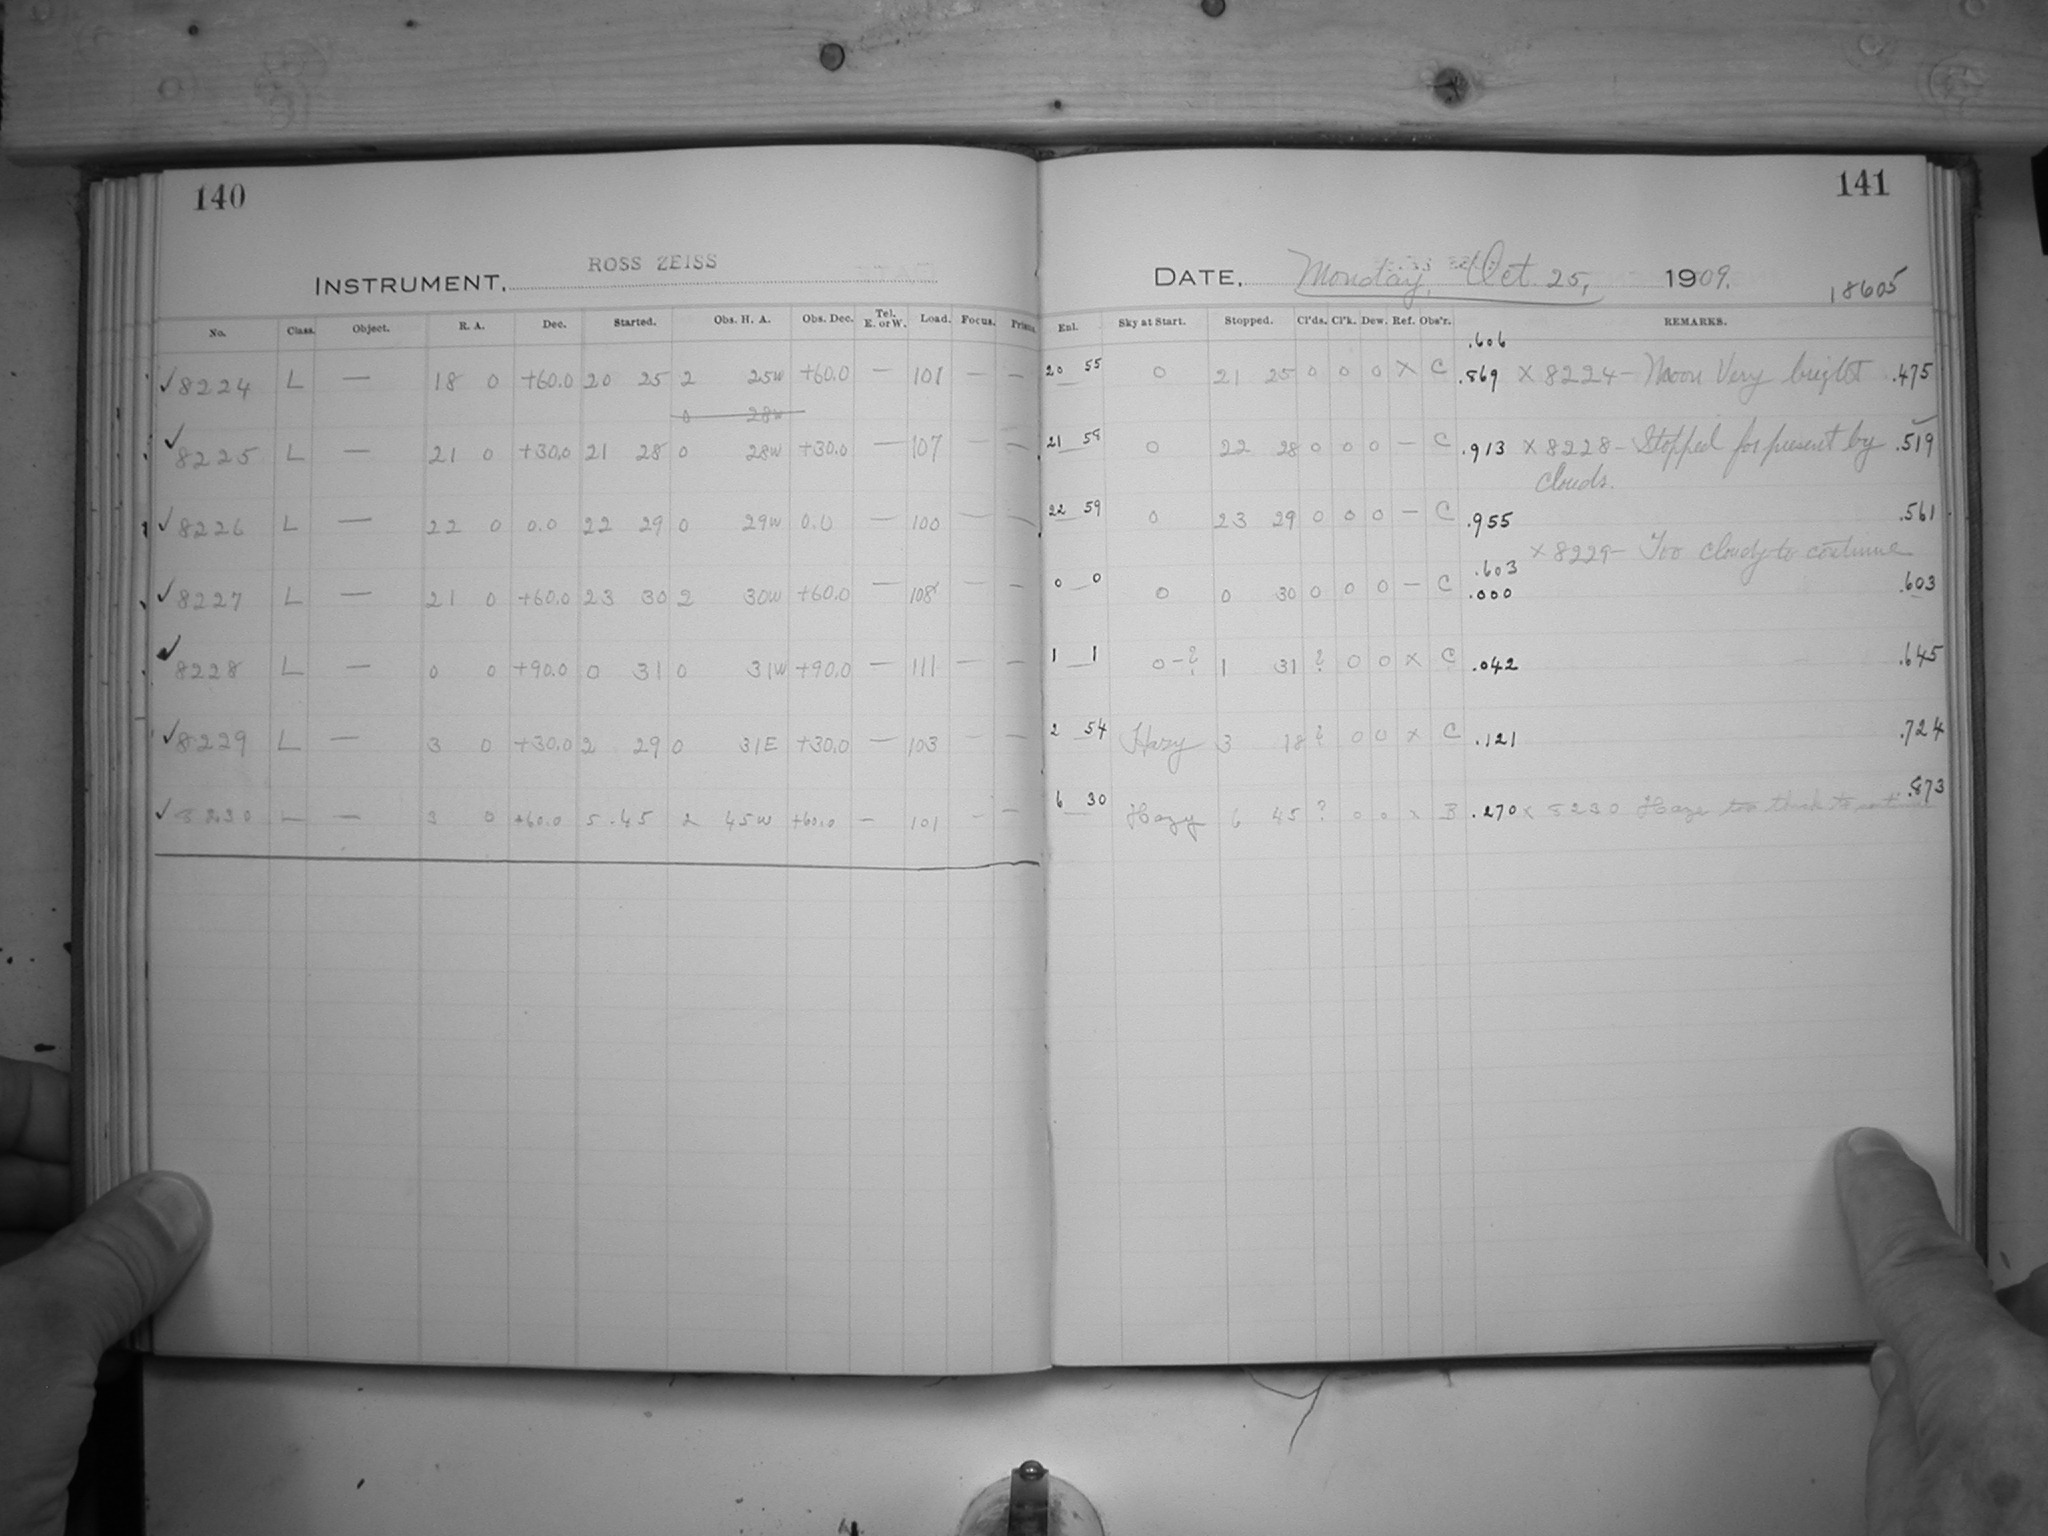 140
INSTRUMENT, ROSS ZEISS
No. Class. Object. R. A. Dec. Started. Obs. H. A. Obs. Dec. Tel. E. or W. Load. Focus. Prism.
✓8224 L — 18 0 +60.0 20 25 2 25W +60.0 — 101 — —
0 28W
✓8225 L — 21 0 +30.0 21 28 0 28W +30.0 — 107 — —
✓8226 L — 22 0 0.0 22 29 0 29W 0.0 — 100 — —
✓8227 L — 21 0 +60.0 23 30 2 30W +60.0 — 108 — —
✓8228 L — 0 0 +90.0 0 31 0 31W +90.0 — 111 — —
✓8229 L — 3 0 +30.0 2 29 0 31E +30.0 — 103 — —
✓8230 L — 3 0 +60.0 5.45 2 45W +60.0 — 101 — —
141
DATE, Monday, Oct. 25, 1909.
18605
Enl. Sky at Start. Stopped. Cl'ds. Cl'k. Dew. Ref. Obs'r. REMARKS.
.606
20 55 0 21 25 0 0 0 X C .569 X 8224 - Moon Very bright .475
21 58 0 22 28 0 0 0 — C .913 X 8228 - Stopped for present by .519
Clouds.
22 59 0 23 29 0 0 0 — C .955 .561
X 8229 - Too cloudy to continue
.603
0 0 0 0 30 0 0 0 — C .000 .603
1 1 0-? 1 31 ? 0 0 X C .042 .645
2 54 Hazy 3 18 ? 0 0 X C .121 .724
.873
6 30 Hazy 6 45 ? 0 0 X B .270 X 8230 Haze too thick to continue